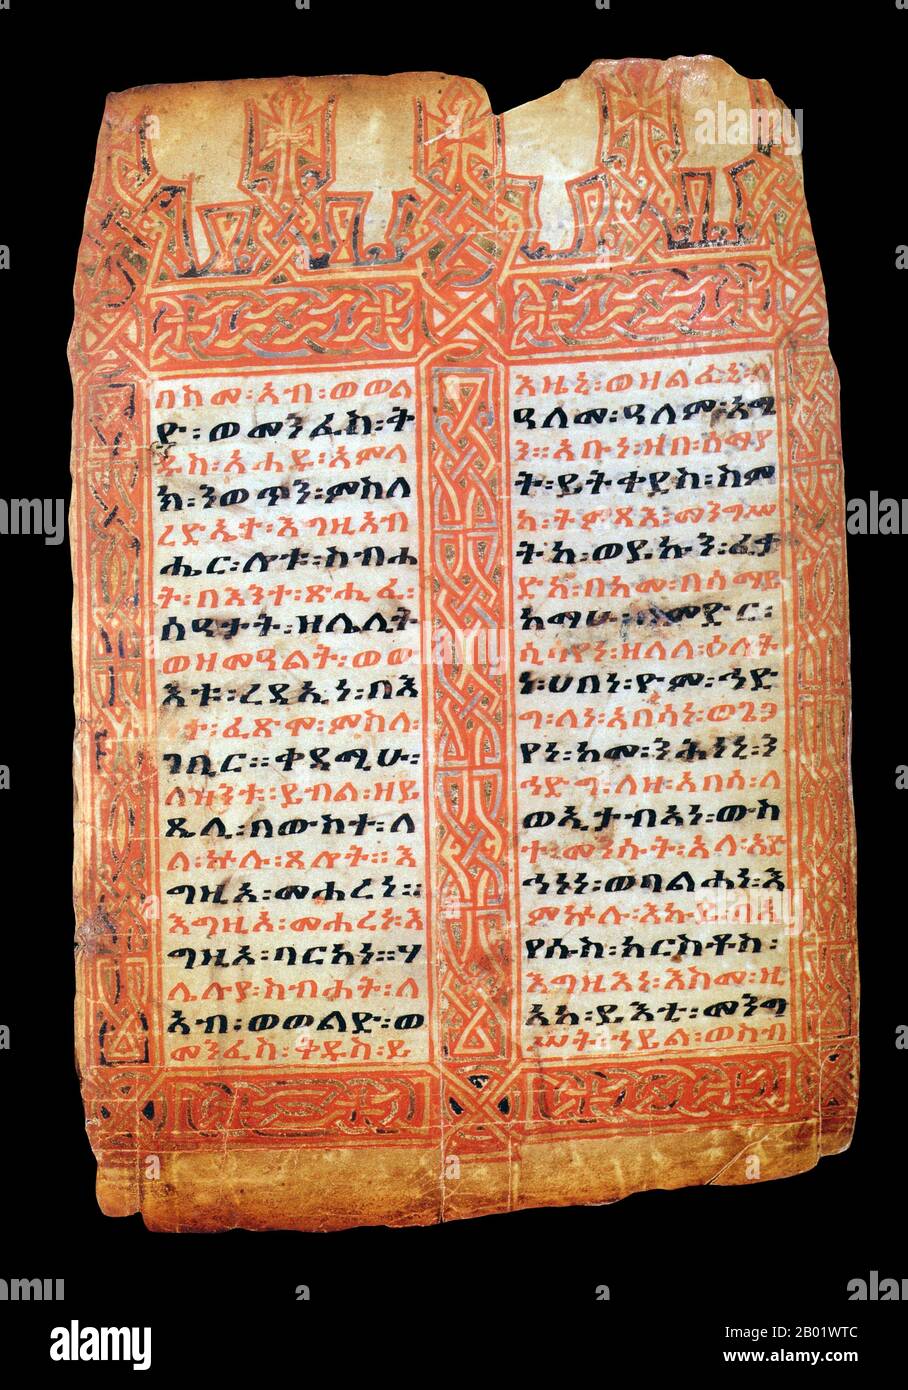 በስመ፡አብ፡ወወል
ድ፡ወመንፈስ፡ቅ
ዱስ፡አሐዱ፡አምላ
ክ፡ንወጥን፡ምስለ
ረድኤተ፡እግዚአብ
ሔር፡ሎቱ፡ስብሐ
ት፡በእንተ፡ጽሒፈ፡
ሰዓታት፡ዘሌሊት
ወዘመዓልት፡ወው
እቱ፡ረዳኢነ፡በእ
ንተ፡ፈጽሞ፡ምስለ፡
ገቢር። ቀዳሚሁ፡
ለዝንቱ፡ይብል፡ዘይ
ጼሊ፡በውስተ፡ለ
ለ፡ኵሉ፡ጸሎት። እ
ግዚአ፡መሐረነ፡፡
እግዚአ፡መሐረነ፡እ
ግዚአ፡ባርአነ። ሃ
ሌሉያ፡ስብሐት፡ለ
አብ፡ወወልድ፡ወ
መንፈስ፡ቅዱስ፡ይ
እዜኒ፡ወዘልፈኒ፡ለ
ዓለመ፡ዓለም፡አሜ
ን። አቡነ፡ዘበ፡ሰማያ
ት፡ይትቀደስ፡ስም
ከ፡ትምጻእ፡መንግሥ
ትከ፡ወይኩን፡ፈቃ
ድከ፡በከመ፡በሰማይ
ከማሁ፡በምድር፡
ሲሳየነ፡ዘለለ፡ዕለት
ነ፡ሀበነ፡ዮም፡ኅድ
ግ፡ለነ፡አበሳነ፡ወጌጋ
የነ፡ከመ፡ንሕነኒ፡ን
ኅድግ፡ለዘ፡አበሰ፡ለ
ወኢታብአነ፡ውስ
ተ፡መንሱት፡አላ፡አድ
ኅነነ፡ወባልሐነ፡እ
ምኵሉ፡እኩይ፡በኢ
የሱስ፡ክርስቶስ፡
እግዚእነ፡እስመ፡ዚ
አከ፡ይእቲ፡መንግ
ሥት፡ኀይል፡ወስብ
alamy
Image ID: 2B01WTC
www.alamy.com